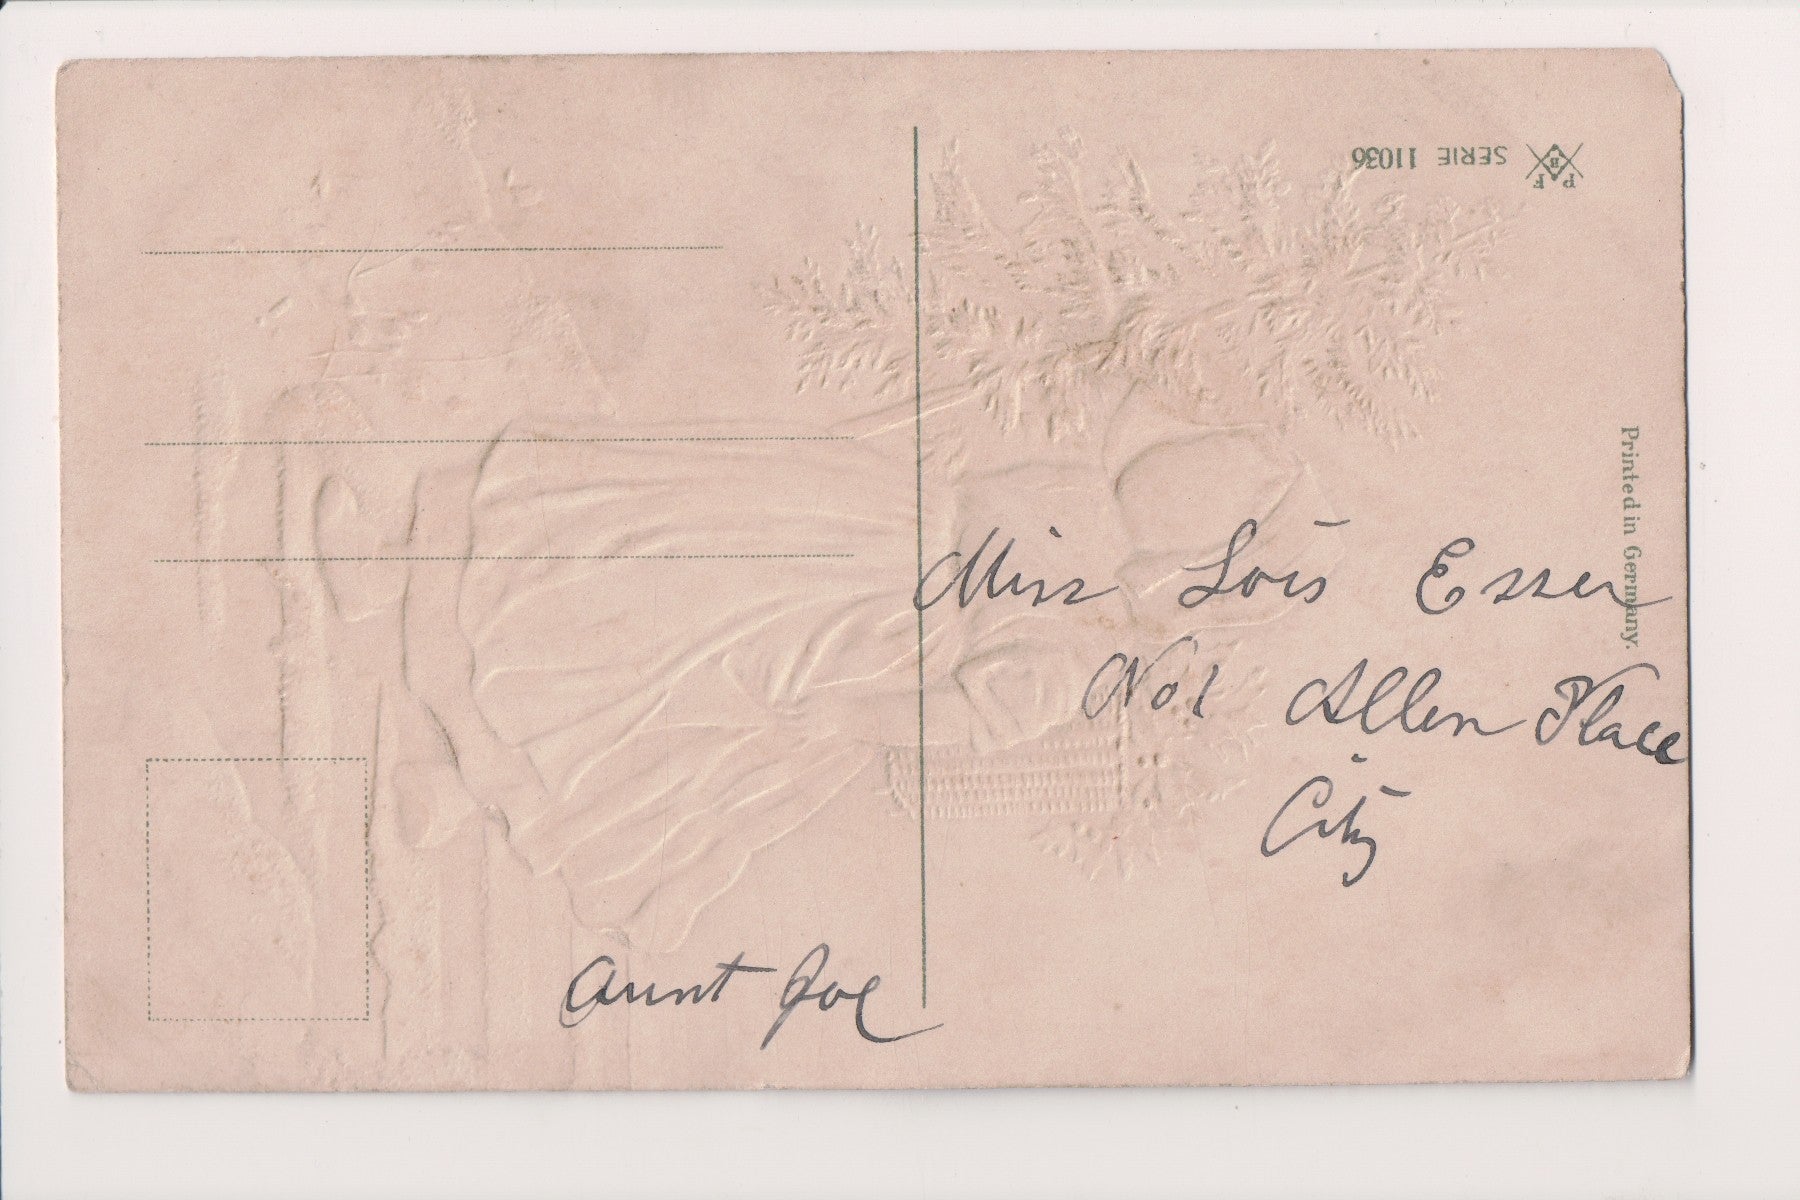 P F
B
SERIE 11036
Printed in Germany.
Miss Lois Esser
No 1 Allen Place
City
Aunt Joe